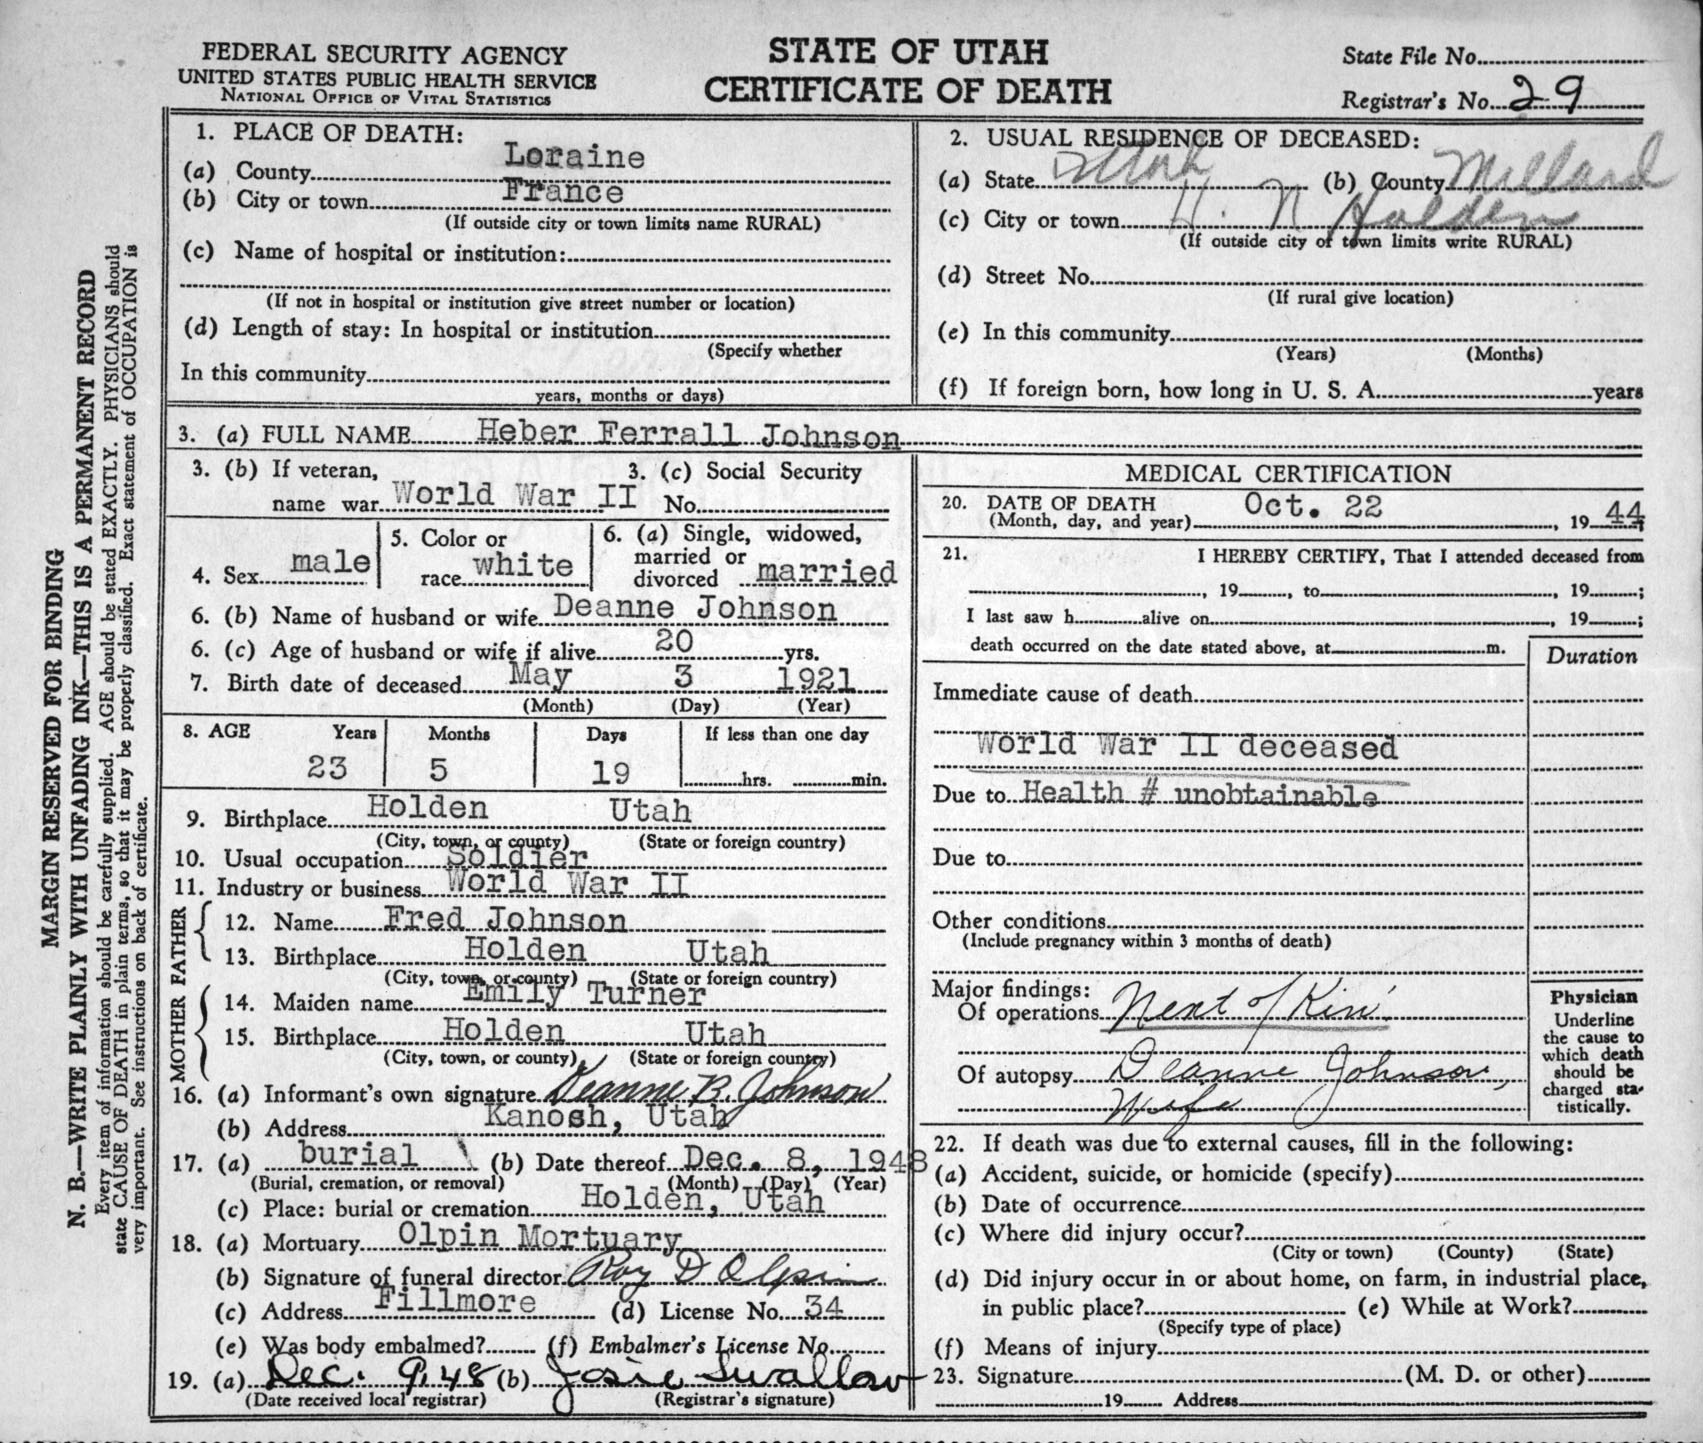 FEDERAL SECURITY AGENCY
UNITED STATES PUBLIC HEALTH SERVICE
NATIONAL OFFICE OF VITAL STATISTICS
STATE OF UTAH
CERTIFICATE OF DEATH
State File No.
Registrar's No. 29
MARGIN RESERVED FOR BINDING
N. B.—WRITE PLAINLY WITH UNFADING INK—THIS IS A PERMANENT RECORD
Every item of information should be carefully supplied. AGE should be stated EXACTLY. PHYSICIANS should
state CAUSE OF DEATH in plain terms, so that it may be properly classified. Exact statement of OCCUPATION is
very important. See instructions on back of certificate.
1. PLACE OF DEATH:
(a) County Loraine
(b) City or town France
(If outside city or town limits name RURAL)
(c) Name of hospital or institution:
(If not in hospital or institution give street number or location)
(d) Length of stay: In hospital or institution
(Specify whether
In this community
years, months or days)
2. USUAL RESIDENCE OF DECEASED:
(a) State Utah (b) County Millard
(c) City or town Holden
(If outside city or town limits write RURAL)
(d) Street No.
(If rural give location)
(e) In this community
(Years) (Months)
(f) If foreign born, how long in U. S. A. years
3. (a) FULL NAME Heber Ferrall Johnson
3. (b) If veteran, 3. (c) Social Security
name war World War II No.
4. Sex male
5. Color or
race white
6. (a) Single, widowed,
married or
divorced married
6. (b) Name of husband or wife Deanne Johnson
6. (c) Age of husband or wife if alive 20 yrs.
7. Birth date of deceased May 3 1921
(Month) (Day) (Year)
8. AGE Years Months Days If less than one day
23 5 19 hrs. min.
9. Birthplace Holden Utah
(City, town, or county) (State or foreign country)
10. Usual occupation Soldier
11. Industry or business World War II
FATHER
12. Name Fred Johnson
13. Birthplace Holden Utah
(City, town, or county) (State or foreign country)
MOTHER
14. Maiden name Emily Turner
15. Birthplace Holden Utah
(City, town, or county) (State or foreign country)
16. (a) Informant's own signature Deanne B. Johnson
(b) Address Kanosh, Utah
17. (a) burial (b) Date thereof Dec. 8, 1948
(Burial, cremation, or removal) (Month) (Day) (Year)
(c) Place: burial or cremation Holden, Utah
18. (a) Mortuary Olpin Mortuary
(b) Signature of funeral director Roy D Olpin
(c) Address Fillmore (d) License No. 34
(e) Was body embalmed? (f) Embalmer's License No.
19. (a) Dec. 9, 48 (b) Josie Swallow
(Date received local registrar) (Registrar's signature)
MEDICAL CERTIFICATION
20. DATE OF DEATH
(Month, day, and year) Oct. 22, 1944;
21. I HEREBY CERTIFY, That I attended deceased from
, 19 , to , 19 ;
I last saw h alive on , 19 ;
death occurred on the date stated above, at m.
Duration
Immediate cause of death
World War II deceased
Due to Health # unobtainable
Due to
Other conditions
(Include pregnancy within 3 months of death)
Major findings:
Of operations Next of Kin
Of autopsy Deanne Johnson,
Wife
Physician
Underline
the cause to
which death
should be
charged sta-
tistically.
22. If death was due to external causes, fill in the following:
(a) Accident, suicide, or homicide (specify)
(b) Date of occurrence
(c) Where did injury occur?
(City or town) (County) (State)
(d) Did injury occur in or about home, on farm, in industrial place,
in public place? (e) While at Work?
(Specify type of place)
(f) Means of injury
23. Signature (M. D. or other)
19 Address